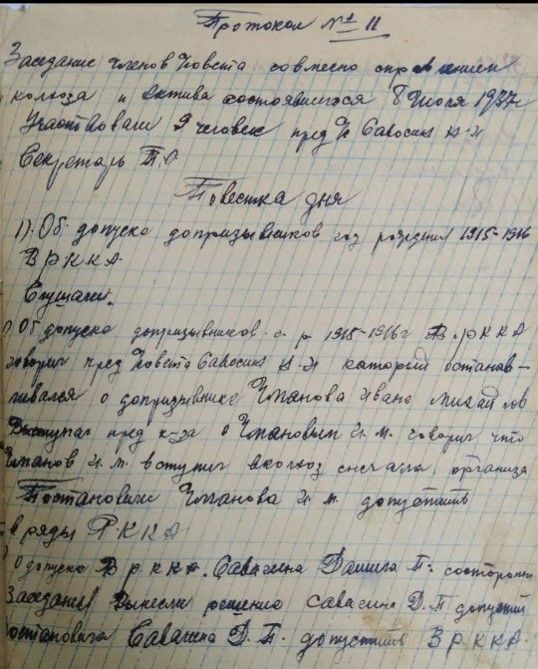 Протокол № 11
Заседание членов совета совмесно справлением
колхоза и актива состоявшегося 8 июля 1937г
Участвовали 9 человек пред Савосин
Секретарь Т.О
Повестка дня
1). Об допуске допризывников год рождения 1915-1916
В РККА
Слушали.
Об допуске допризывников г р 1915-1916г В. РККА
говорит пред совета Савосин который останав-
ливался о допризывнике Чманова Ивана Михайлов
Выступал пред к-за о Чмановым И. М. говорит что
Чманов И. М. вступил вколхоз сначала организа
Постановили Чманова И. М. допустить
в ряды РККА
О допуске В РККА. Савасина Данила П.
Заседание вынесли решению Савасина Д. П допустит
остановили Савасина Д. П. допустить В РККА.